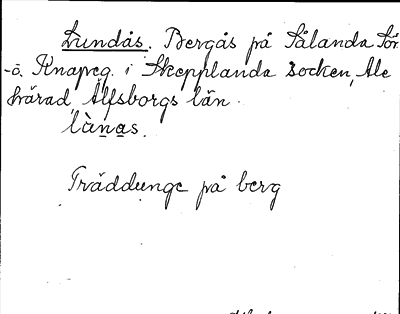 Lundås. Bergås på Sålanda Sör
-ö. Knapeg. i Skepplanda socken, Ale
härad, Älfsborgs län.
làṉa̱s.
Träddunge på berg